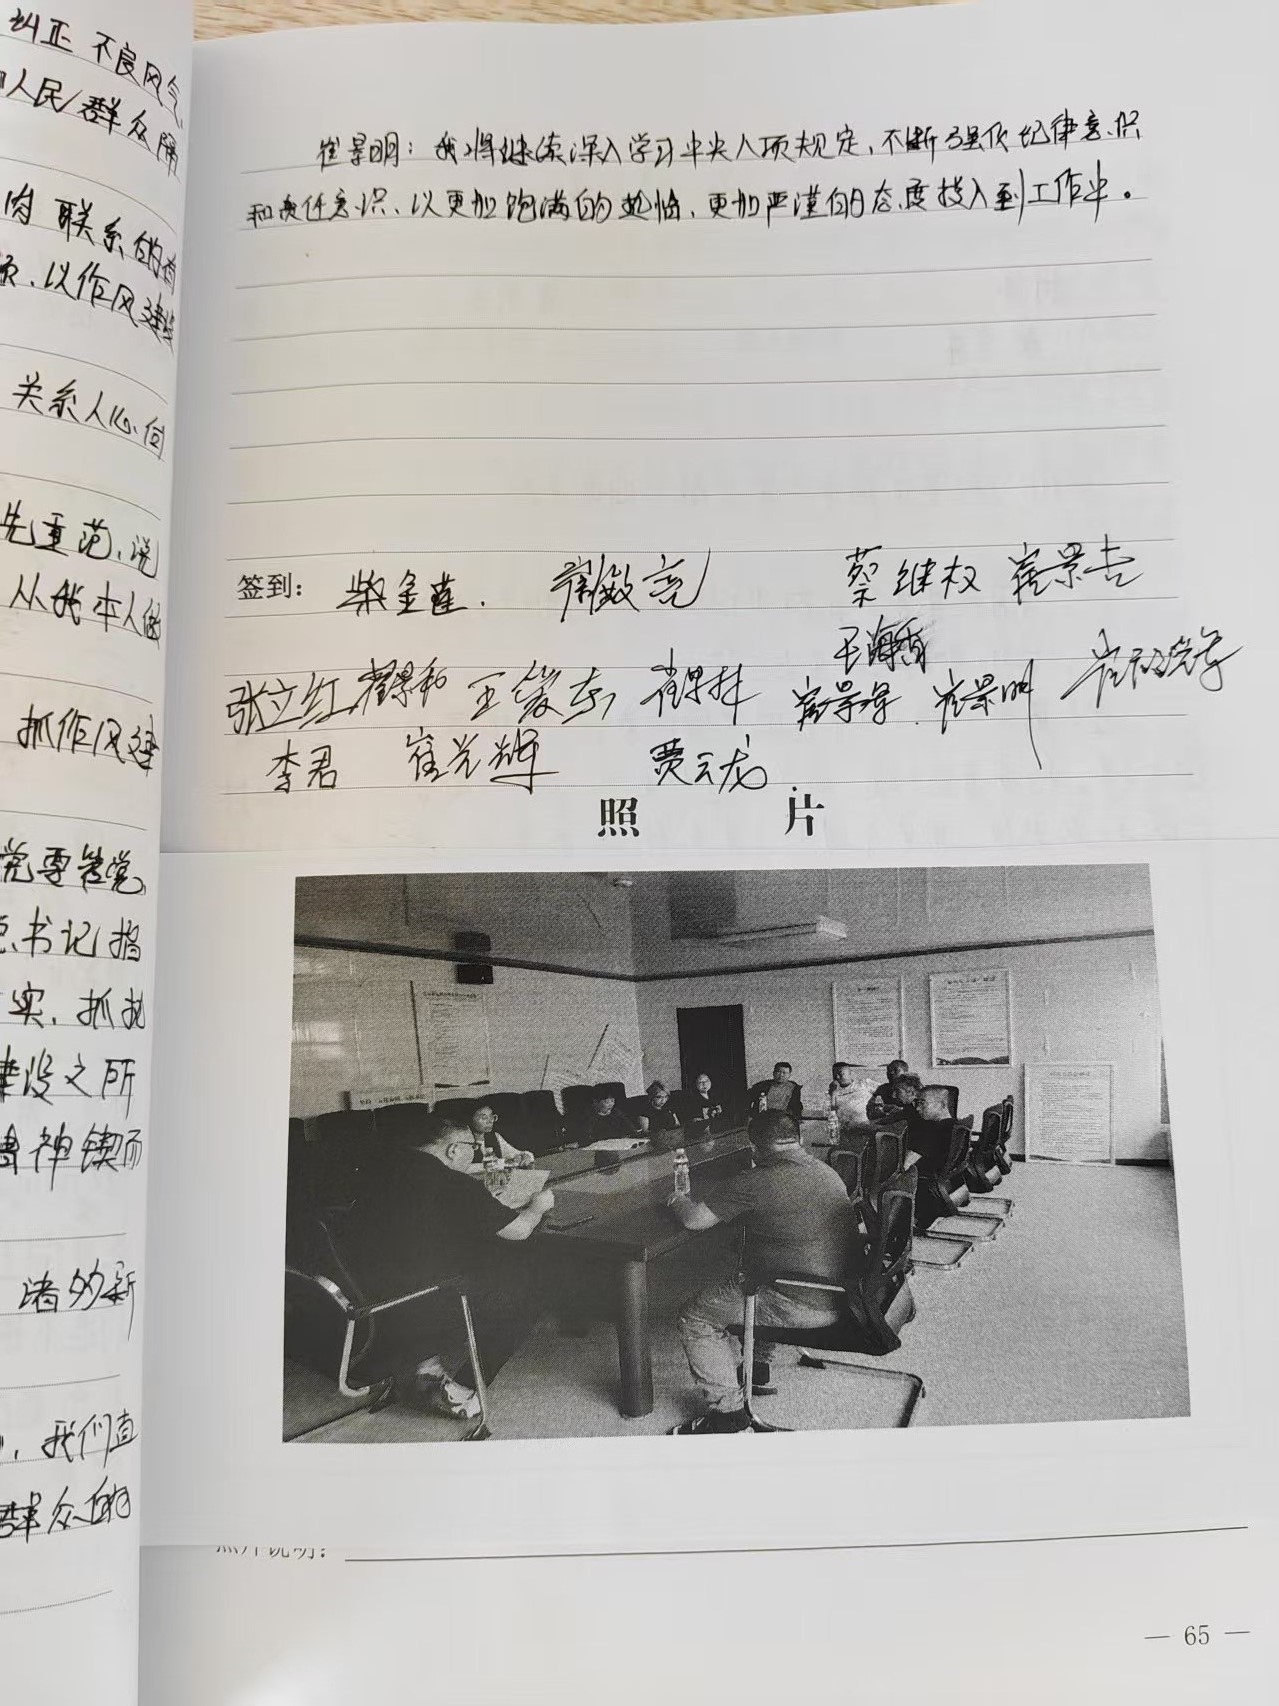 纠正不良风气
人民群众
联系的
以作风建
关系人心向
从我本人做
抓作风建
党要管党
书记指
实、抓
建设之所
神锲而
诸的新
我们直
群众的
崔景明：我将继续深入学习中央八项规定，不断强化纪律意识
和责任意识、以更加饱满的热情、更加严谨的态度投入到工作中。
签到：柴金莲 崔敏亮 蔡继权 崔景吉
王海香
张立红 王俊杰 崔景明
李君 崔光辉 贾云龙
照 片
照片说明：
— 65 —